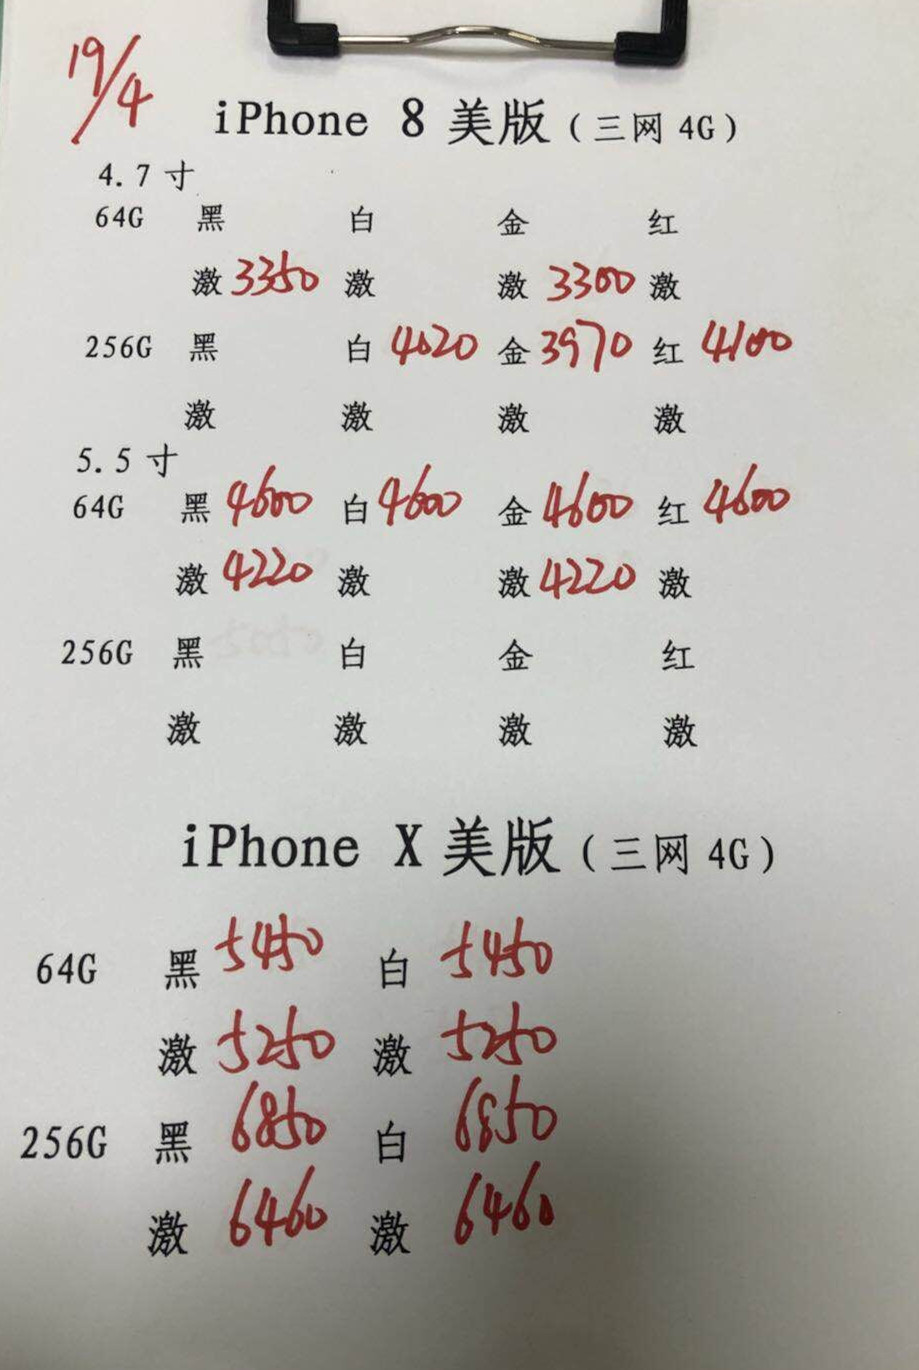 19/4
iPhone 8 美版（三网 4G）
4.7 寸
64G 黑 白 金 红
激 3350 激 激 3300 激
256G 黑 白 4020 金 3970 红 4100
激 激 激 激
5.5 寸
64G 黑 4600 白 4600 金 4600 红 4600
激 4220 激 激 4220 激
256G 黑 白 金 红
激 激 激 激
iPhone X 美版（三网 4G）
64G 黑 5450 白 5450
激 5250 激 5250
256G 黑 6850 白 6850
激 6460 激 6460